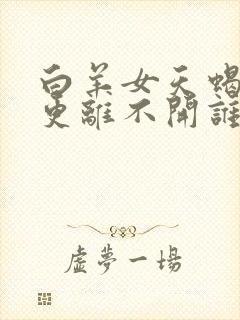 白羊女天蝎
更離不開誰
虛夢一場